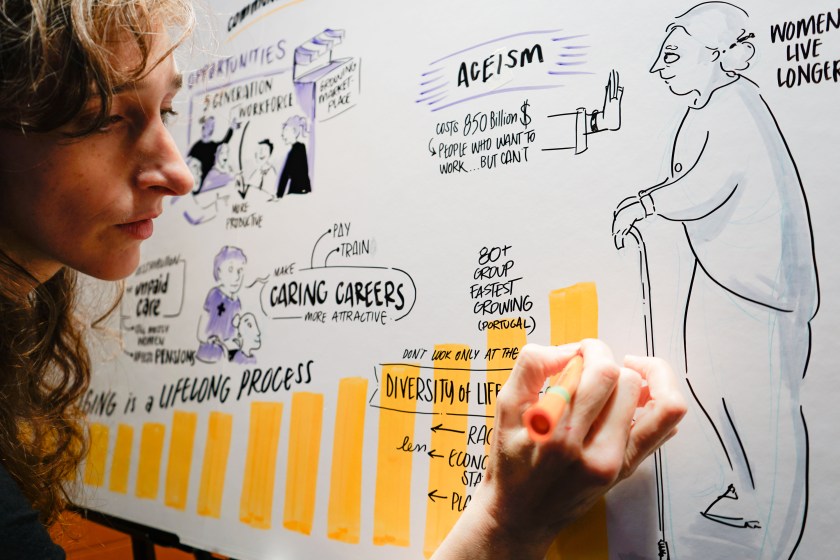 OPPORTUNITIES
5 GENERATION
WORKFORCE
GROWING
MARKET-
PLACE
MORE
PRODUCTIVE
AGEISM
COSTS 850 Billion $
PEOPLE WHO WANT TO
WORK...BUT CAN'T
WOMEN
LIVE
LONGER
unpaid
care
MOSTLY
WOMEN
PENSIONS
PAY
TRAIN
MAKE
CARING CAREERS
MORE ATTRACTIVE
80+
GROUP
FASTEST
GROWING
(PORTUGAL)
GING is a LIFELONG PROCESS
DON'T LOOK ONLY AT THE
DIVERSITY of LIFE
RAC
less
ECONO
STA
PLA